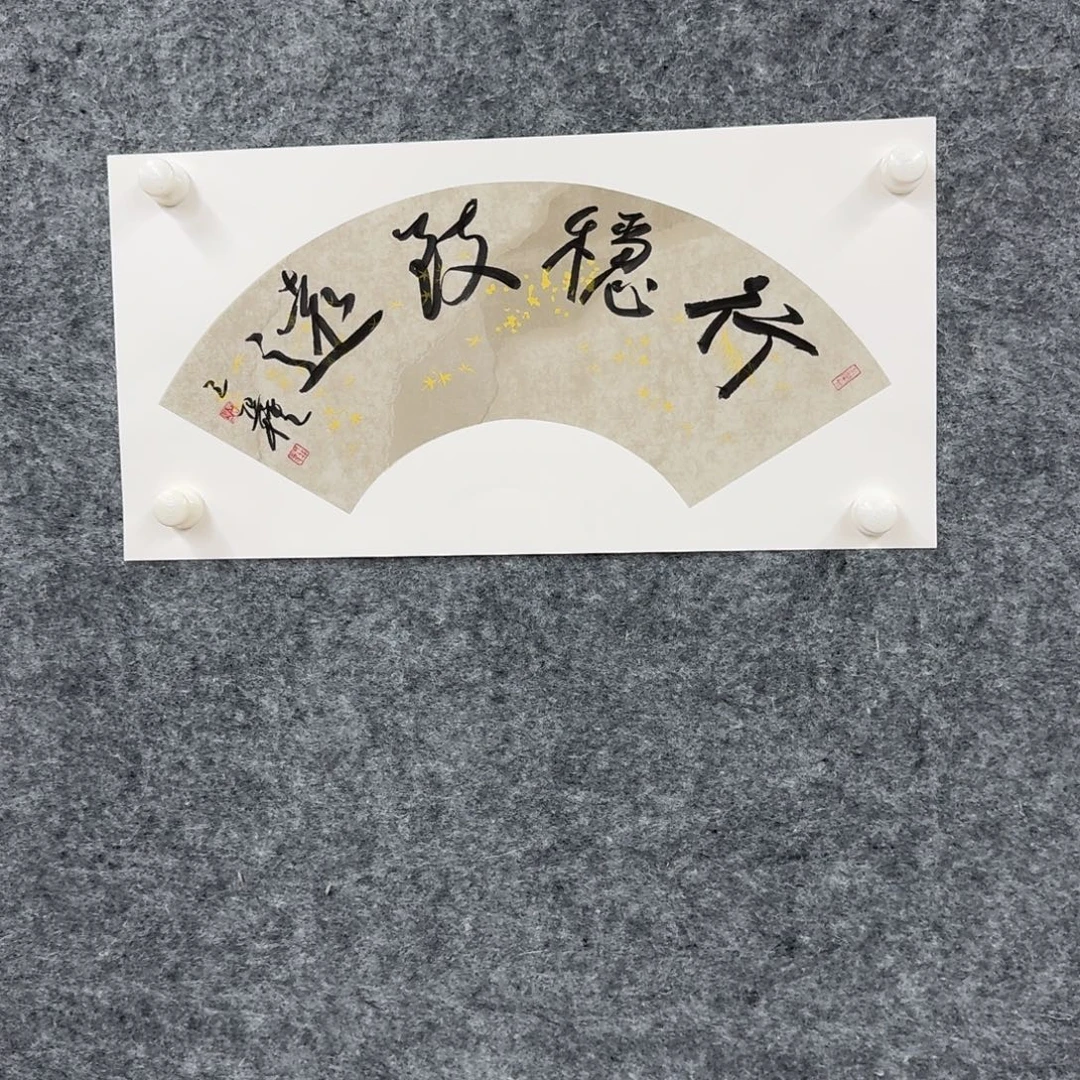 行穩致遠